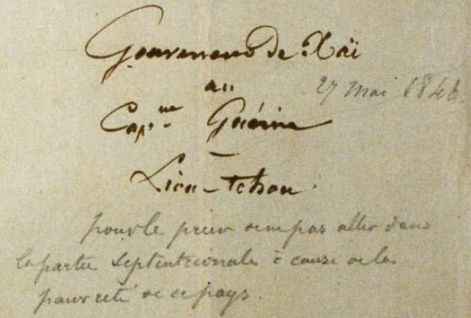 Gouverneur de Xaï
au
27 mai 1846
Cap^ne Guérin
Lieu-tchou.
pour le prier de ne pas aller dans
la partie septentrionale à cause de la
pauvreté de ce pays.